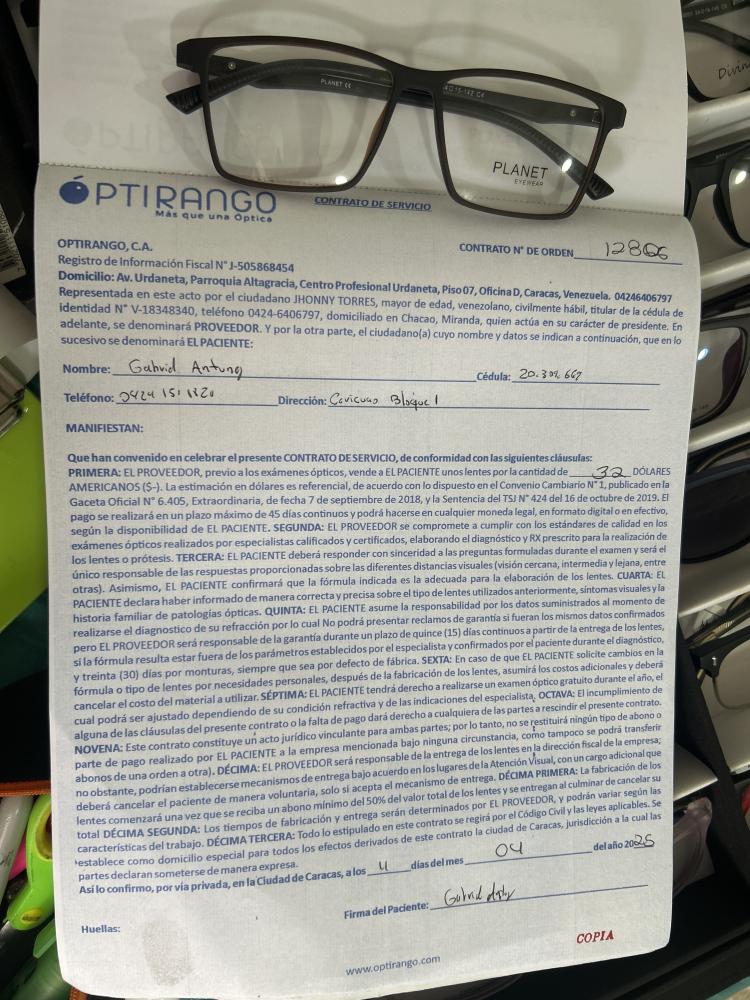 PLANET CE
PLANET
EYEWEAR
ÓPTIRANGO
Más que una Óptica
CONTRATO DE SERVICIO
OPTIRANGO, C.A.
CONTRATO N° DE ORDEN 12806
Registro de Información Fiscal N° J-505868454
Domicilio: Av. Urdaneta, Parroquia Altagracia, Centro Profesional Urdaneta, Piso 07, Oficina D, Caracas, Venezuela. 04246406797
Representada en este acto por el ciudadano JHONNY TORRES, mayor de edad, venezolano, civilmente hábil, titular de la cédula de
identidad N° V-18348340, teléfono 0424-6406797, domiciliado en Chacao, Miranda, quien actúa en su carácter de presidente. En
adelante, se denominará PROVEEDOR. Y por la otra parte, el ciudadano(a) cuyo nombre y datos se indican a continuación, que en lo
sucesivo se denominará EL PACIENTE:
Nombre: Gabriel Cédula: 20.309.667
Teléfono: 0424 151 1320 Dirección: Caricuao Bloque 1
MANIFIESTAN:
Que han convenido en celebrar el presente CONTRATO DE SERVICIO, de conformidad con las siguientes cláusulas:
PRIMERA: EL PROVEEDOR, previo a los exámenes ópticos, vende a EL PACIENTE unos lentes por la cantidad de 32 DÓLARES
AMERICANOS ($-). La estimación en dólares es referencial, de acuerdo con lo dispuesto en el Convenio Cambiario N° 1, publicado en la
Gaceta Oficial N° 6.405, Extraordinaria, de fecha 7 de septiembre de 2018, y la Sentencia del TSJ N° 424 del 16 de octubre de 2019. El
pago se realizará en un plazo máximo de 45 días continuos y podrá hacerse en cualquier moneda legal, en formato digital o en efectivo,
según la disponibilidad de EL PACIENTE. SEGUNDA: EL PROVEEDOR se compromete a cumplir con los estándares de calidad en los
exámenes ópticos realizados por especialistas calificados y certificados, elaborando el diagnóstico y RX prescrito para la realización de
los lentes o prótesis. TERCERA: EL PACIENTE deberá responder con sinceridad a las preguntas formuladas durante el examen y será el
único responsable de las respuestas proporcionadas sobre las diferentes distancias visuales (visión cercana, intermedia y lejana, entre
otras). Asimismo, EL PACIENTE confirmará que la fórmula indicada es la adecuada para la elaboración de los lentes. CUARTA: EL
PACIENTE declara haber informado de manera correcta y precisa sobre el tipo de lentes utilizados anteriormente, síntomas visuales y la
historia familiar de patologías ópticas. QUINTA: EL PACIENTE asume la responsabilidad por los datos suministrados al momento de
realizarse el diagnostico de su refracción por lo cual No podrá presentar reclamos de garantía si fueran los mismos datos confirmados
pero EL PROVEEDOR será responsable de la garantía durante un plazo de quince (15) días continuos a partir de la entrega de los lentes,
si la fórmula resulta estar fuera de los parámetros establecidos por el especialista y confirmados por el paciente durante el diagnóstico,
y treinta (30) días por monturas, siempre que sea por defecto de fábrica. SEXTA: En caso de que EL PACIENTE solicite cambios en la
fórmula o tipo de lentes por necesidades personales, después de la fabricación de los lentes, asumirá los costos adicionales y deberá
cancelar el costo del material a utilizar. SÉPTIMA: EL PACIENTE tendrá derecho a realizarse un examen óptico gratuito durante el año, el
cual podrá ser ajustado dependiendo de su condición refractiva y de las indicaciones del especialista. OCTAVA: El incumplimiento de
alguna de las cláusulas del presente contrato o la falta de pago dará derecho a cualquiera de las partes a rescindir el presente contrato.
NOVENA: Este contrato constituye un acto jurídico vinculante para ambas partes; por lo tanto, no se restituirá ningún tipo de abono o
parte de pago realizado por EL PACIENTE a la empresa mencionada bajo ninguna circunstancia, como tampoco se podrá transferir
abonos de una orden a otra). DÉCIMA: EL PROVEEDOR será responsable de la entrega de los lentes en la dirección fiscal de la empresa;
no obstante, podrían establecerse mecanismos de entrega bajo acuerdo en los lugares de la Atención Visual, con un cargo adicional que
deberá cancelar el paciente de manera voluntaria, solo si acepta el mecanismo de entrega. DÉCIMA PRIMERA: La fabricación de los
lentes comenzará una vez que se reciba un abono mínimo del 50% del valor total de los lentes y se entregan al culminar de cancelar su
total DÉCIMA SEGUNDA: Los tiempos de fabricación y entrega serán determinados por EL PROVEEDOR, y podrán variar según las
características del trabajo. DÉCIMA TERCERA: Todo lo estipulado en este contrato se regirá por el Código Civil y las leyes aplicables. Se
establece como domicilio especial para todos los efectos derivados de este contrato la ciudad de Caracas, jurisdicción a la cual las
partes declaran someterse de manera expresa.
Así lo confirmo, por vía privada, en la Ciudad de Caracas, a los 4 días del mes 04 del año 2025
Firma del Paciente: Gabriel
Huellas:
COPIA
www.optirango.com
Divin